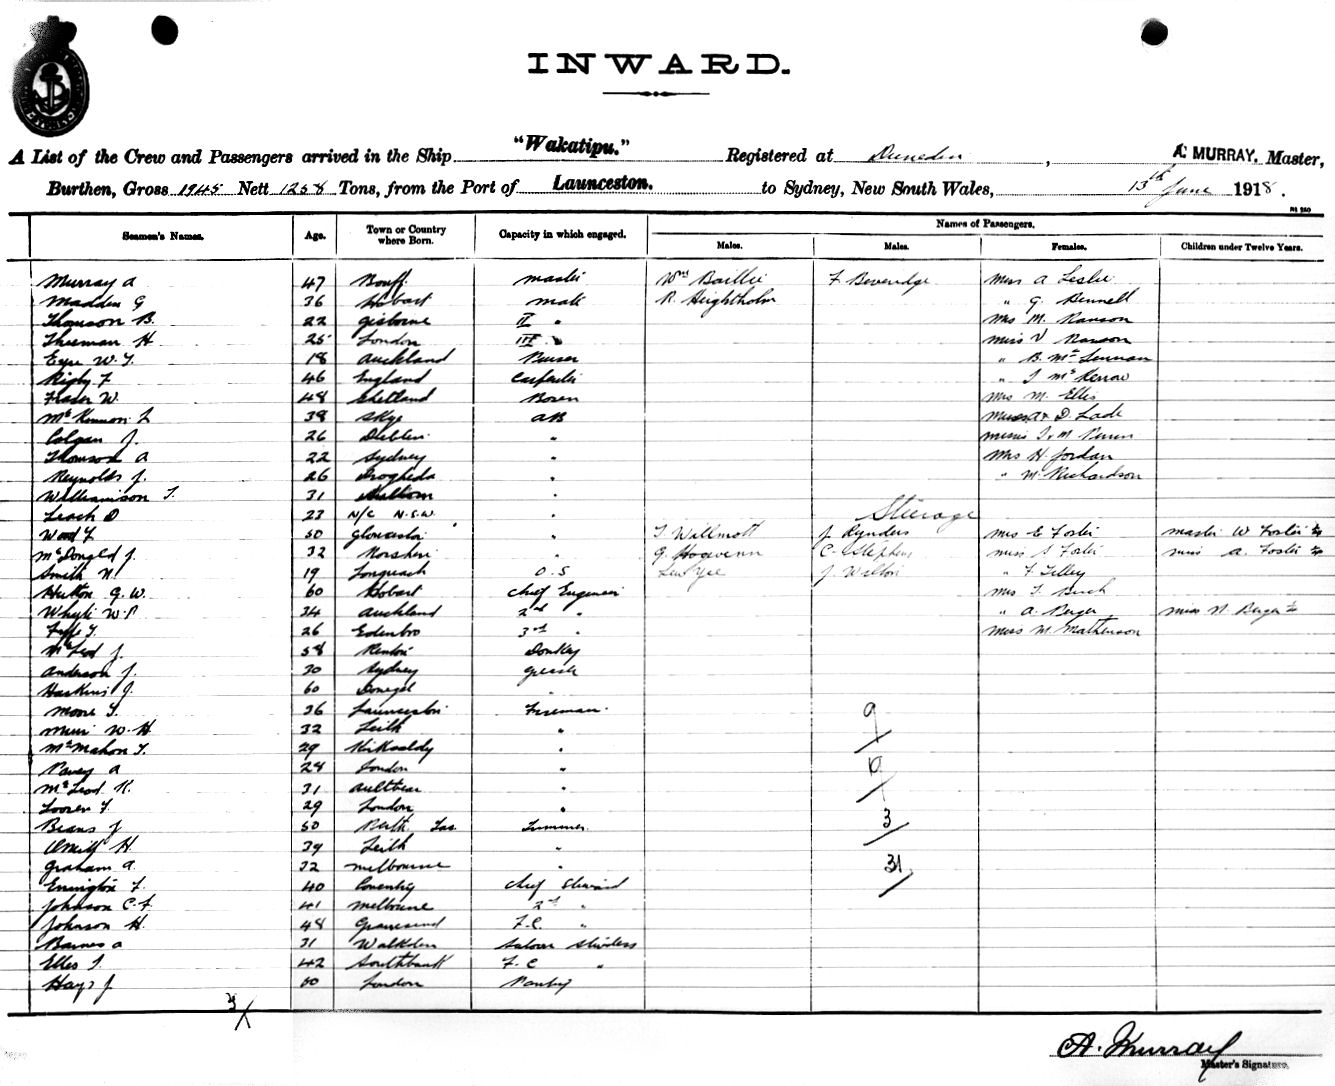 INWARD.
A List of the Crew and Passengers arrived in the Ship "Wakatipu." Registered at Dunedin, A. MURRAY, Master,
Burthen, Gross 1945 Nett 1258 Tons, from the Port of Launceston. to Sydney, New South Wales, 13th June 1918.
Names of Passengers.
Seamen's Names. Age. Town or Country where Born. Capacity in which engaged. Males. Males. Females. Children under Twelve Years.
Murray A 47 Banff master Wm Baillie F Beveridge Miss A Leslie
Madden G 36 Hobart mate R. Heightholm " G. Bennell
Thomson B. 22 Gisborne II " Mrs M. Ranson
Sherman H 25 London III " Miss V Ranson
Eyre W. J. 18 Auckland Purser " B. McLennan
Rigby F 46 England Carpenter " J McKerrow
Fraser W. 48 Shetland Bosun Mrs M. Ellis
McKinnon L 38 Skye AB Misses A & D. Lade
Colgan J. 26 Dublin " Misses J & M
Thomson A 22 Sydney " Mrs H. Jordan
Reynolds J. 26 Drogheda " " M. Richardson
Williamson J. 31 "
Leach D 23 N/C N.S.W. " Steerage
Wood F 50 Gloucester " J Willmott J. Rynders Mrs E Foster Master W Foster
McDonald J. 32 " G. C. Stephens Miss S Foster Miss A. Foster
Smith N. 19 Longreach O.S Lew Yee J. Wilton " F Tilley
Hutton G. W. 60 Hobart Chief Engineer Mrs J. Birch
Whyte W. P 34 Auckland 2nd " " A. Berger Miss N. Berger
Fyfe J. 26 Edinbro 3rd " Miss M. Mathewson
McLeod J. 58 Renton Donkey
Anderson J. 30 Sydney Greaser
Haskins J. 60 Donegal "
Moore J. 36 Launceston Fireman
Muir W. H 32 Leith "
McMahon J. 29 Kirkcaldy "
Pavey A 28 London "
McLeod K. 31 Aultbea "
29 London "
Beans J 50 Perth Tas Trimmer
O'Neill H 39 Leith "
Graham A. 32 Melbourne "
Errington F. 40 Coventry Chief Steward
Johnson C. F. 41 Melbourne 2nd "
Johnson H. 48 Gravesend F.C. "
Barnes A 31 Walkden Saloon Stwdess
Elles J. 42 Southbank F.C "
Hays J 60 London Pantry
9
10
3
31
A. Murray
Master's Signature.